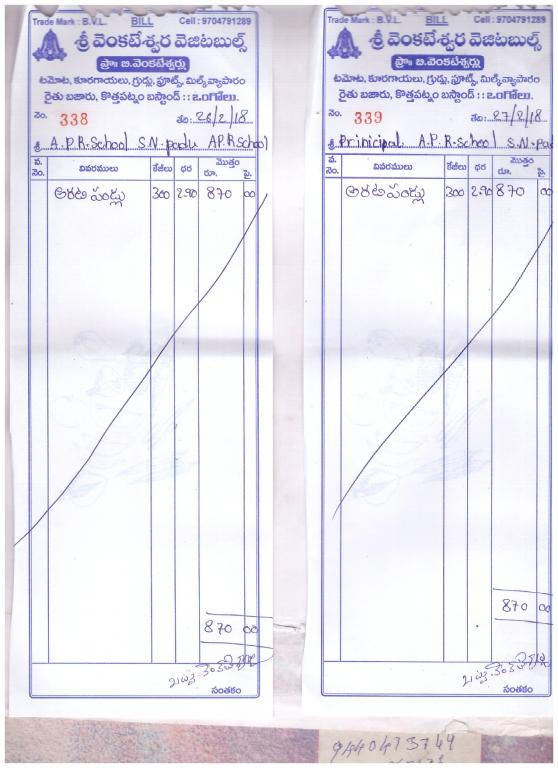 Trade Mark : B.V.L. BILL Cell : 9704791289
శ్రీ వెంకటేశ్వర వెజిటబుల్స్
ప్రొః బి.వెంకటేశ్వర్లు
టమోట, కూరగాయలు, గ్రుడ్లు, ఫ్రూట్స్, మిల్క్ వ్యాపారం
రైతు బజారు, కొత్తపట్నం బస్టాండ్ : : ఒంగోలు.
నెం. 338 తది: 26/2/18
శ్రీ A.P.R.School S.N.padu AP.RSchool
వ.నెం. వివరములు కేజీలు ధర మొత్తం రూ. పై.
అరటి పండ్లు 300 2.90 870 00
870 00
సంతకం
Trade Mark : B.V.L. BILL Cell : 9704791289
శ్రీ వెంకటేశ్వర వెజిటబుల్స్
ప్రొః బి.వెంకటేశ్వర్లు
టమోట, కూరగాయలు, గ్రుడ్లు, ఫ్రూట్స్, మిల్క్ వ్యాపారం
రైతు బజారు, కొత్తపట్నం బస్టాండ్ : : ఒంగోలు.
నెం. 339 తది: 27/2/18
శ్రీ Prinicipal A.P.R.School S.N.pad
వ.నెం. వివరములు కేజీలు ధర మొత్తం రూ. పై.
అరటి పండ్లు 300 2.90 870 00
870 00
సంతకం
9440473749